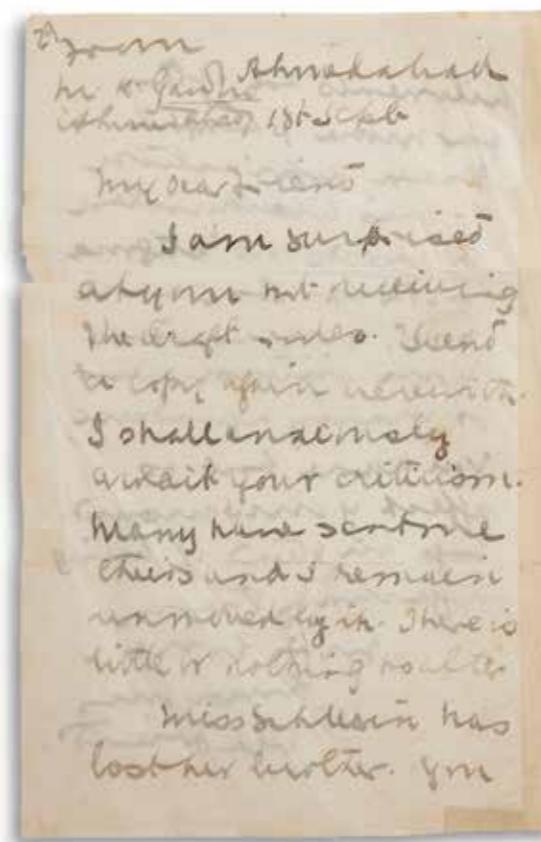 From
M K Gandhi Ahmedabad
Ahmedabad 1st Sept
My dear friend
I am surprised
at your not receiving
the draft rules. I send
a copy again herewith.
I shall anxiously
await your criticism.
Many have sent me
theirs and I remain
unmoved by it. There is
little or nothing to alter
Miss Schlesin has
lost her brother. You